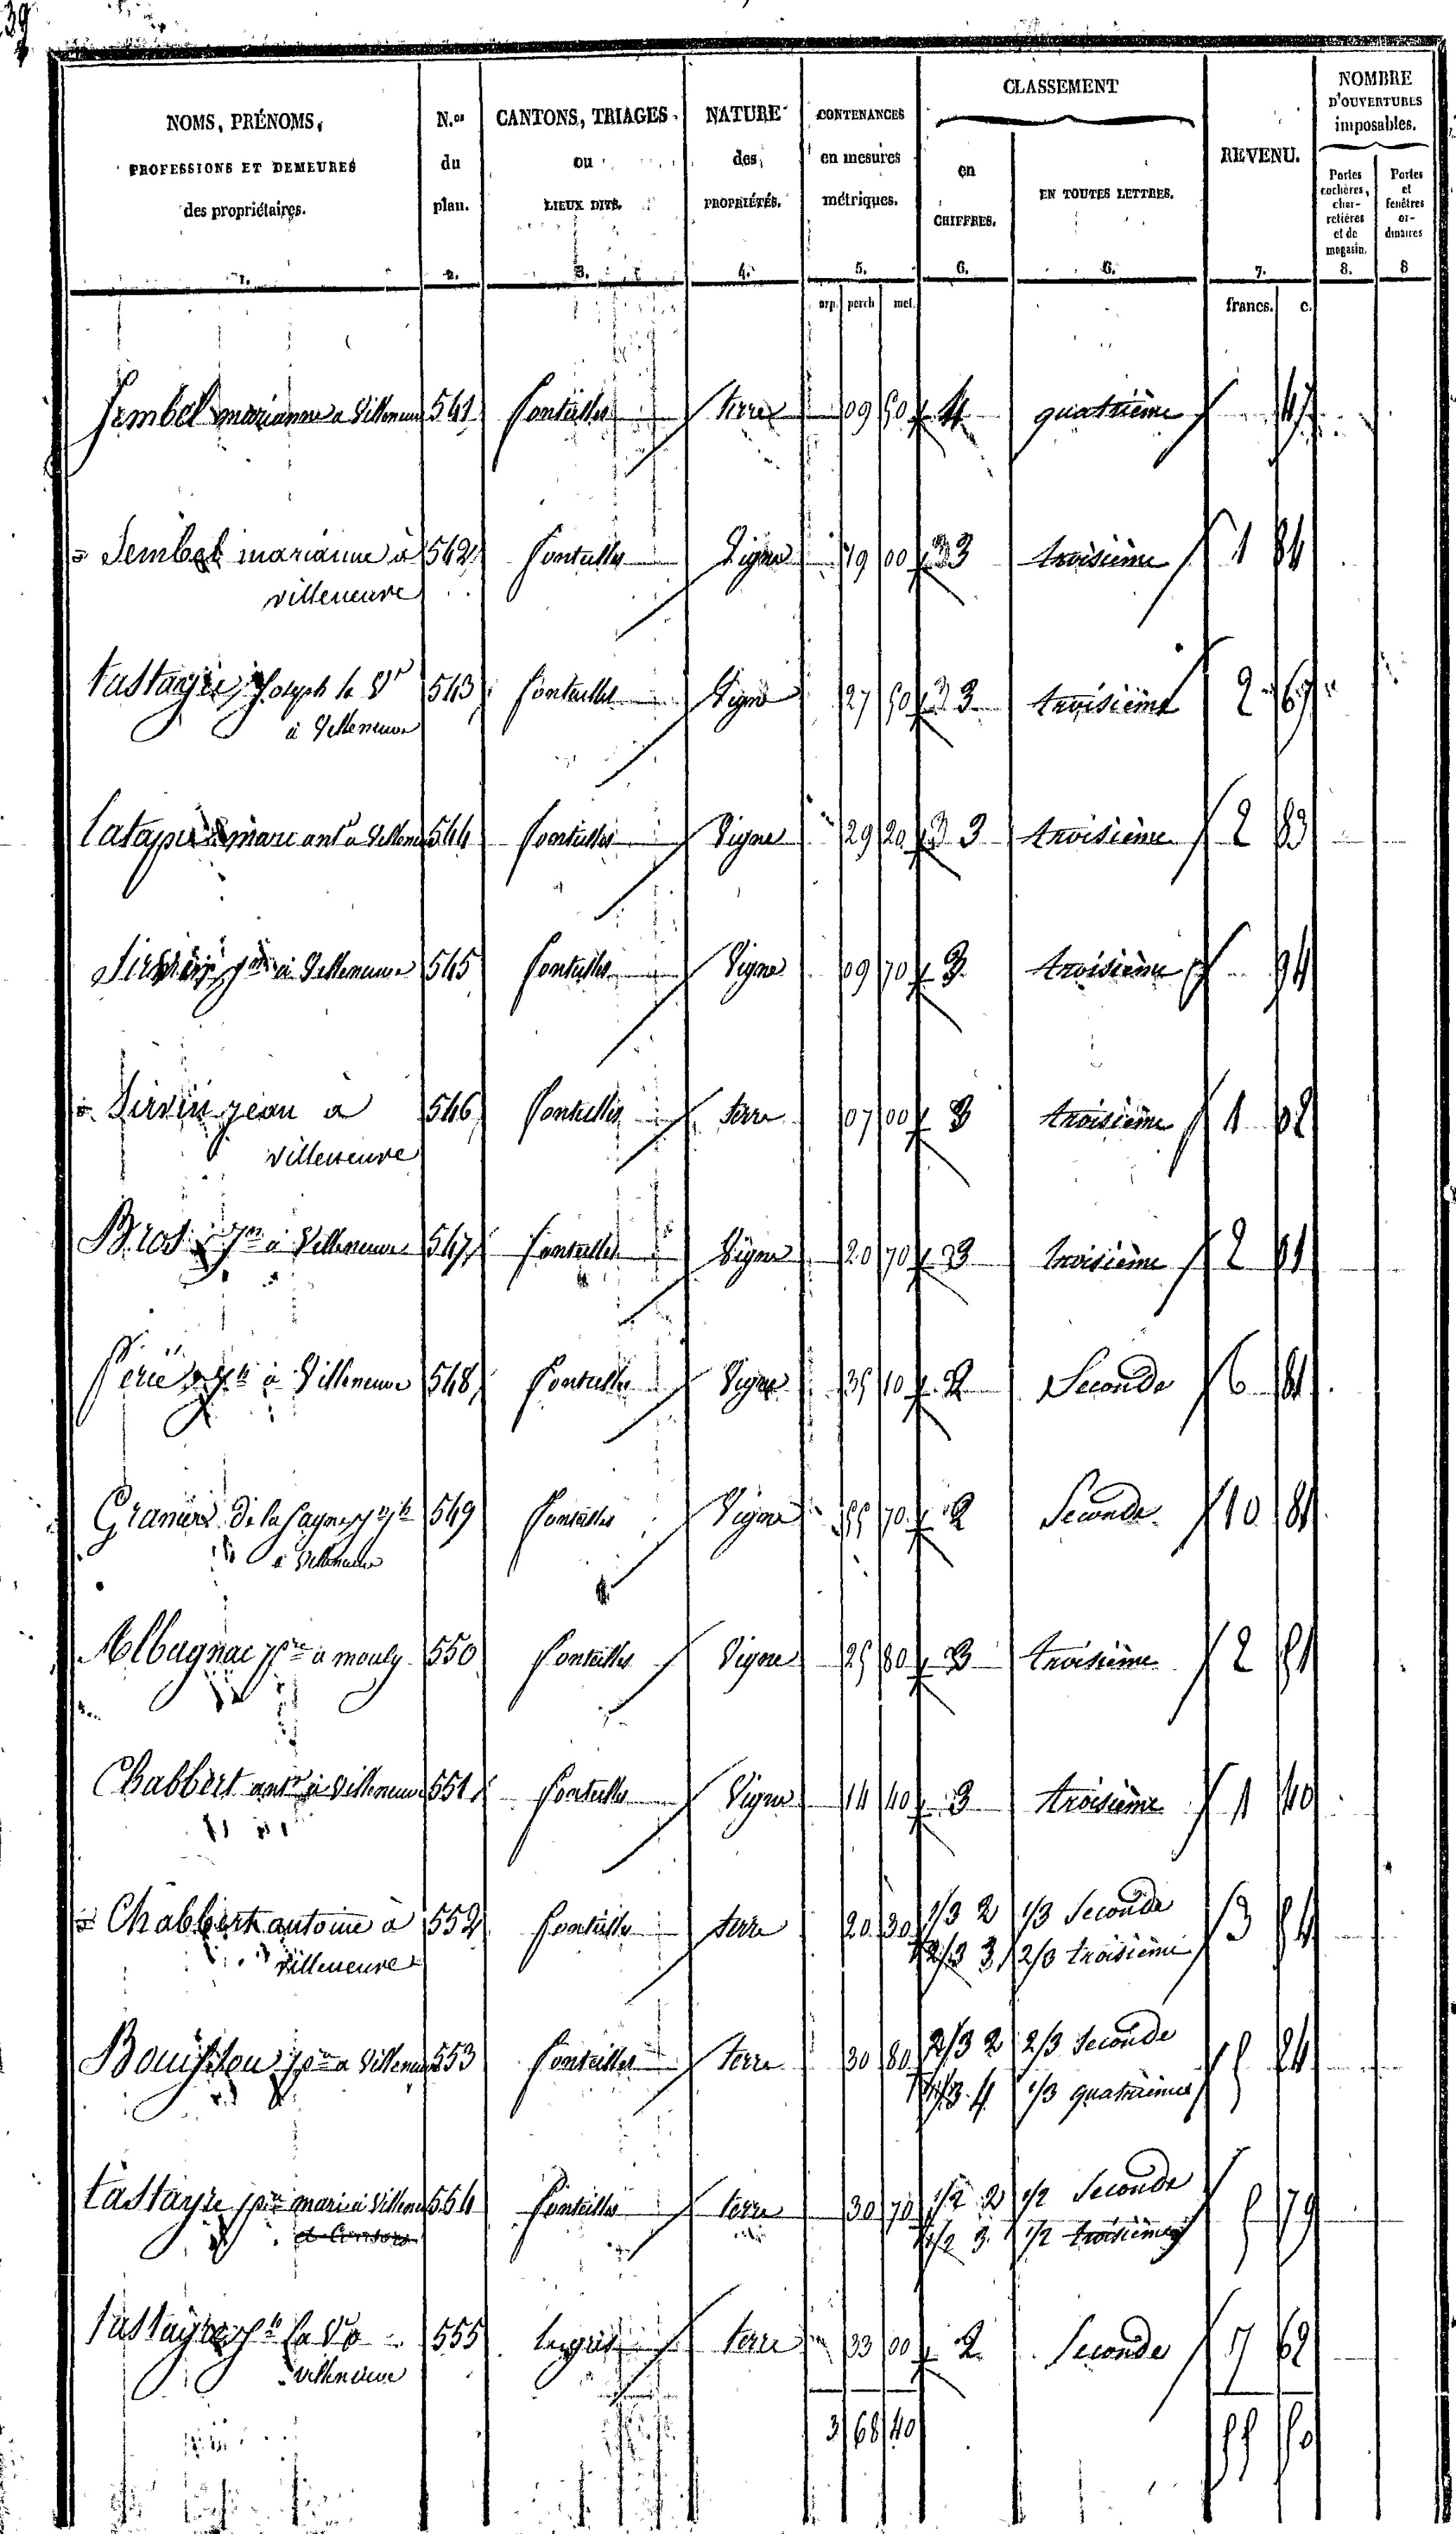 39
NOMS, PRÉNOMS,
PROFESSIONS ET DEMEURES
des propriétaires.
1.
N.os
du
plan.
2.
CANTONS, TRIAGES
ou
LIEUX DITS.
3.
NATURE
des
PROPRIÉTÉS.
4.
CONTENANCES
en mesures
métriques.
5.
CLASSEMENT
en
CHIFFRES.
6.
EN TOUTES LETTRES.
6.
REVENU.
7.
NOMBRE
D'OUVERTURES
imposables.
Portes
cochères,
char-
retières
et de
magasin.
8.
Portes
et
fenêtres
or-
dinaires
8
arp. perch met. francs. c.
Sembel marianne a Villeneuve 541 fonteilles terre 09 50 4 quatrième 47
Sembel marianne à 542 fonteilles Vigne 19 00 3 troisième 1 84
villeneuve
tastayre Joseph le Vx 543 fonteilles Vigne 27 50 3 troisième 2 67
à Villeneuve
Latapie marc ant.e a Villeneuve 544 fonteilles Vigne 29 20 3 troisième 2 83
Sirvin jean à Villeneuve 545 fonteilles Vigne 09 70 3 troisième 94
Sirvin jean à 546 fonteilles terre 07 00 3 troisième 1 02
villeneuve
Bros jn à Villeneuve 547 fonteilles Vigne 20 70 3 troisième 2 01
Périé jh à Villeneuve 548 fonteilles Vigne 35 10 2 Seconde 6 81
Granier de la Cayre jh 549 fonteilles Vigne 55 70 2 Seconde 10 81
à Villeneuve
Albagnac pre à mouly 550 fonteilles Vigne 25 80 3 troisième 2 51
Chabbert ant.e à Villeneuve 551 fonteilles Vigne 14 40 3 troisième 1 40
Chabbert antoine à 552 fonteilles terre 20 30 1/3 2 1/3 Seconde 3 54
villeneuve 2/3 3 2/3 troisième
Bouisson à Villeneuve 553 fonteilles terre 30 80 2/3 2 2/3 Seconde 5 24
1/3 4 1/3 quatrième
tastayre marié à Villeneuve 554 fonteilles terre 30 70 1/2 2 1/2 Seconde 5 79
1/2 3 1/2 troisième
tastayre jh 555 terre 33 00 2 Seconde 7 62
villeneuve
3 68 40 55 50